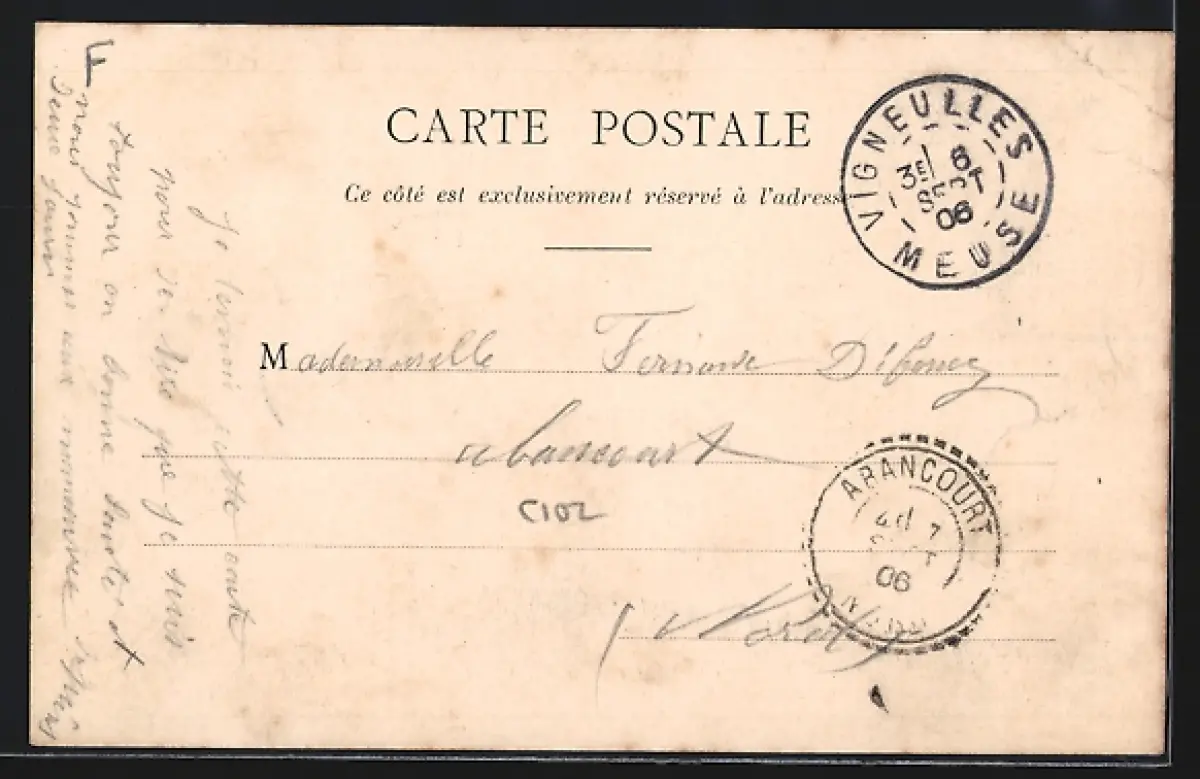 CARTE POSTALE
Ce côté est exclusivement réservé à l'adresse
VIGNEULLES
3E 6
SEPT
06
MEUSE
Mademoiselle Fernande
abancourt
C102
ABANCOURT
4E 7
SEPT
06
Nord
Je carte
pour que je suis
toujour en bonne santé et
nous sommes aux manoeuvre